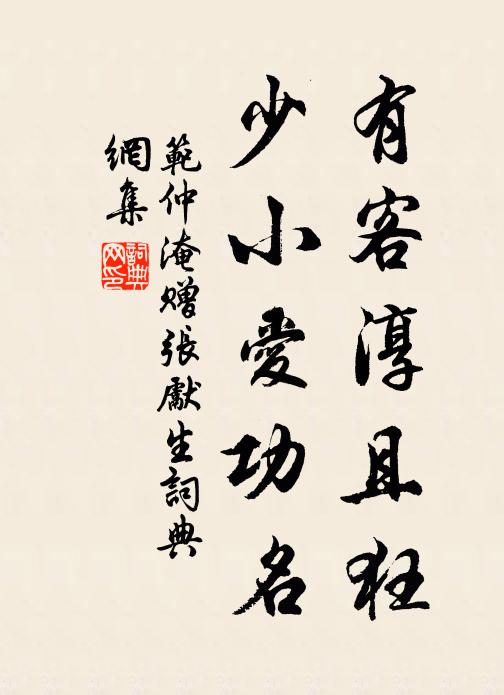 有客淳且狂
少小愛功名
範仲淹贈張先生詞典
網集
詞典
網印